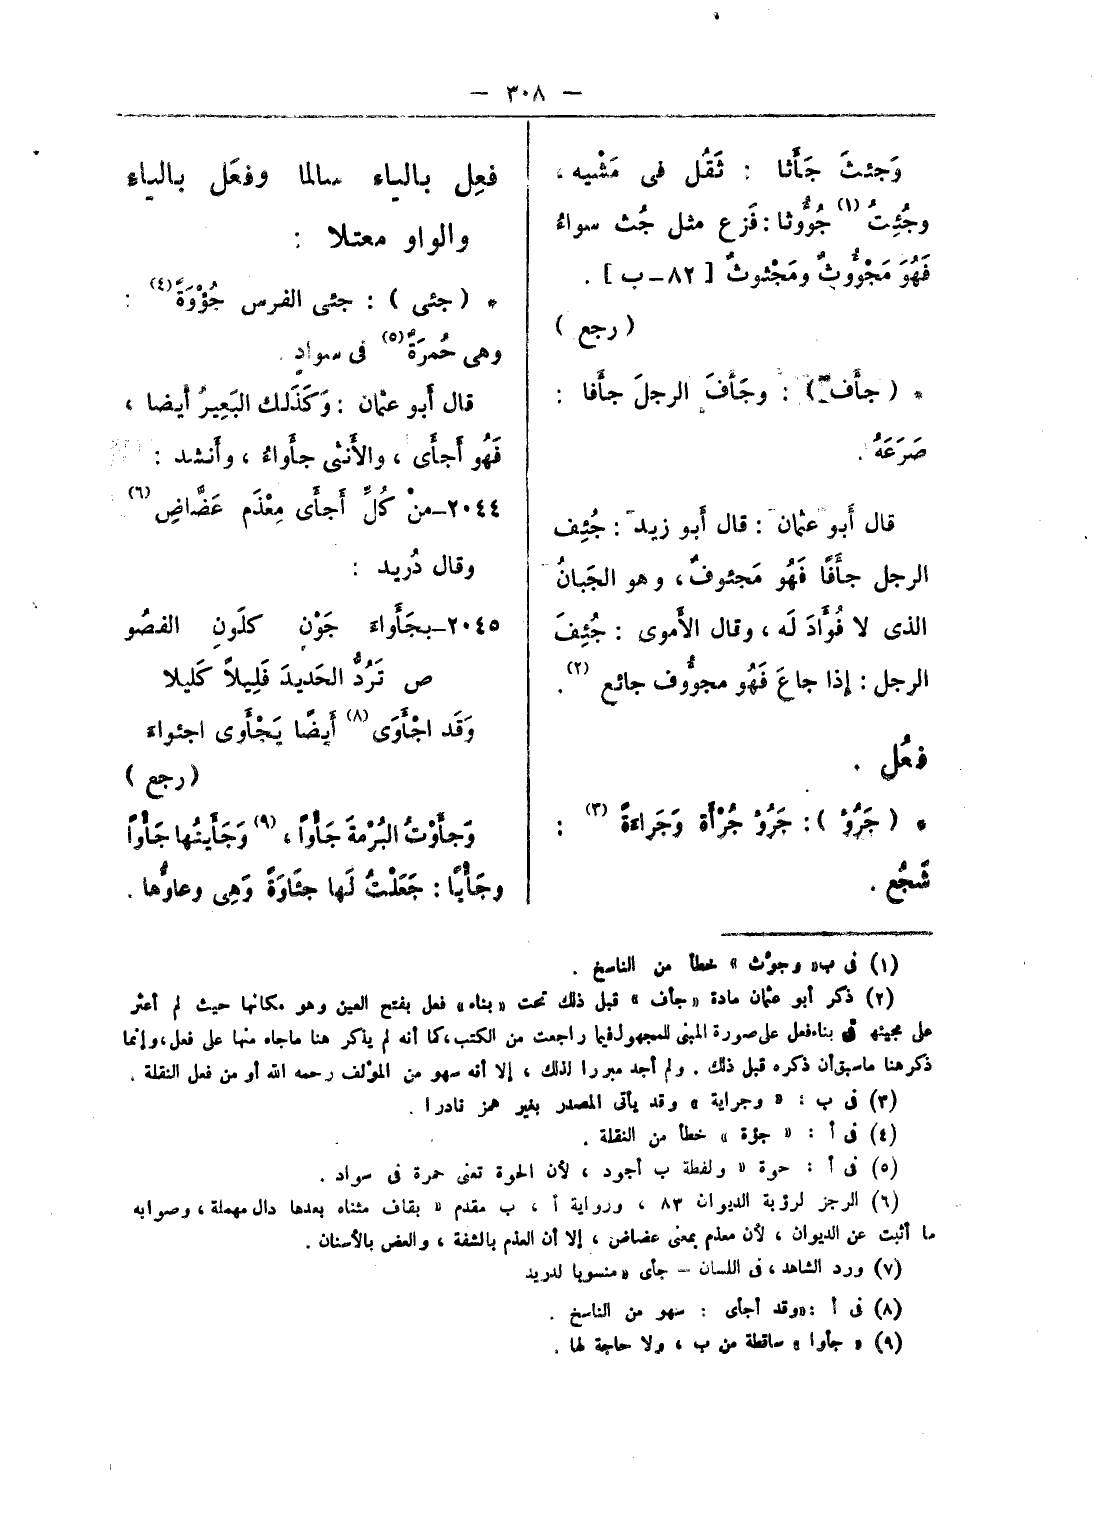 — ٣٠٨ —
وَجئثَ جَأَثا : ثَقُل فى مَشْيه ،
وجُئِثُ (١) جُوُّوثا : فَزع مثل جُث سواءُ
فَهُوَ مَجْوُّوثٌ ومَجْثوثٌ [ ٨٢ – ب ] .
( رجع )
* ( جأَف ) : وجَأَفَ الرجلَ جأفا :
صَرَعَهُ .
قال أَبو عثمان : قال أَبو زيد : جُئِف
الرجل جأَفًا فَهُو مَجئوفٌ ، وهو الجَبانُ
الذى لا فُوَّادَ لَه ، وقال الأَموى : جُئِفَ
الرجل : إذا جاعَ فَهُو مجوُّوف جائع (٢) .
فعُل .
* ( جَرُوَّ ) : جَرُوَّ جُرْأَة وَجَراءَةً (٣) :
شَجُع .
فعِل بالياء سالما وفعَل بالياء
والواو معتلا :
* ( جئى ) : جئى الفرس جُوْوَةً (٤) :
وهى حُمرَةٌ (٥) فى سوادٍ .
قال أَبو عثمان : وَكَذَلك البَعِيرُ أَيضا ،
فَهُو أَجأَى ، والأَنثى جأَواءُ ، وأَنشد :
٢٠٤٤ – منْ كُلِّ أَجأَى مِعْذَم عَضَّاضِ (٦)
وقال دُريد :
٢٠٤٥ – بجَأَواءَ جَوْنٍ كلَونِ الفصُو
ص تَرُدُّ الحَديدَ فَلِيلاً كَليلا
وَقَد اجْأَوَى (٨) أَيضًا يَجْأَوى اجئواءَ
( رجع )
وَجأَوْتُ البُرْمةَ جَأْواً ، (٩) وَجَأَيتُها جَأْواً
وجَأْيًا : جَعَلْتُ لَها جئَاوَةً وَهِى وعاوُّها .
(١) فى ب « وجوُّث » خطأ من الناسخ .
(٢) ذكر أبو عثمان مادة « جأف » قبل ذلك تحت « بناء » فعل بفتح العين وهو مكانها حيث لم أعثر
على مجيئه فى بناء فعل على صورة المبنى للمجهول فيما راجعت من الكتب ، كما أنه لم يذكر هنا ماجاء منها على فعل ، وإنما
ذكر هنا ماسبق أن ذكره قبل ذلك . ولم أجد مبررا لذلك ، إلا أنه سهو من المؤلف رحمه الله أو من فعل النقلة .
(٣) فى ب : « وجراية » وقد يأتى المصدر بغير همز نادرا .
(٤) فى أ : « جؤة » خطأ من النقلة .
(٥) فى أ : حوة « ولفظة ب أجود ، لأن الحوة تعنى حمرة فى سواد .
(٦) الرجز لرؤبة الديوان ٨٣ ، ورواية أ ، ب مقدم « بقاف مثناه بعدها دال مهملة ، وصوابه
ما أثبت عن الديوان ، لأن معذم بمعنى عضاض ، إلا أن العذم بالشفة ، والعض بالأسنان .
(٧) ورد الشاهد ، فى اللسان – جأى « منسوبا لدريد
(٨) فى أ : « وقد أجأى : سهو من الناسخ .
(٩) « جأوا » ساقطة من ب ، ولا حاجة لها .